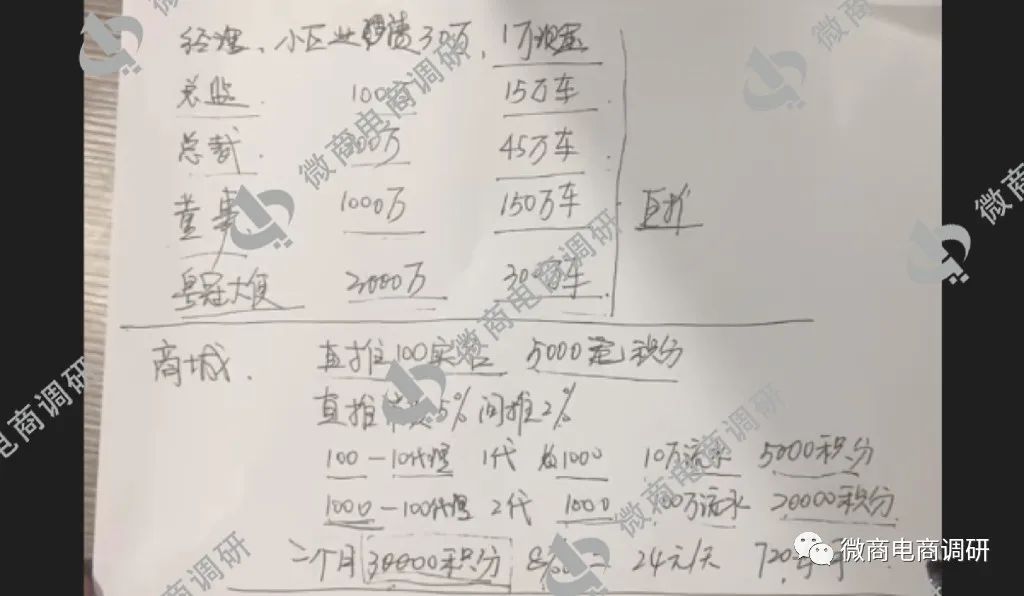 经理、小区业绩达30万,1万现金
总监 100万 15万车
总裁 00万 45万车
董事 1000万 150万车
直推
粤冠大使 2000万 300万车
商城 直推100实 5000 积分
直推 5% 间推2%
100-10代理 1代 1000 10万流水 5000积分
1000-100代理 2代 1000 100万流水 20000积分
三个月 30000积分 8 = 24元/天 720
微商电商调研